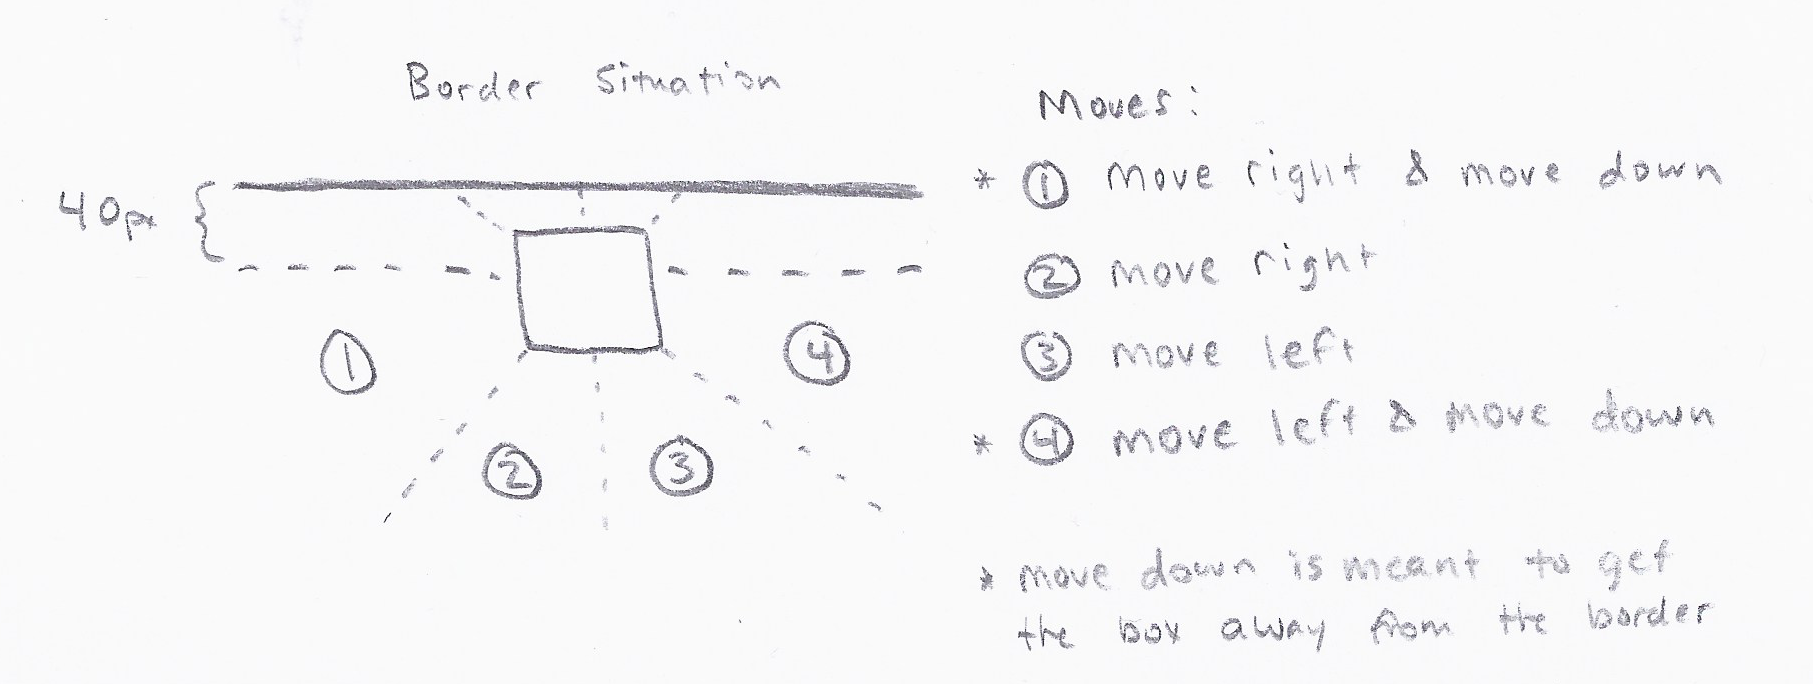 Border Situation
40px
1
4
2
3
Moves:
* 1 Move right & move down
2 move right
3 move left
* 4 move left & move down
* move down is meant to get
the box away from the border